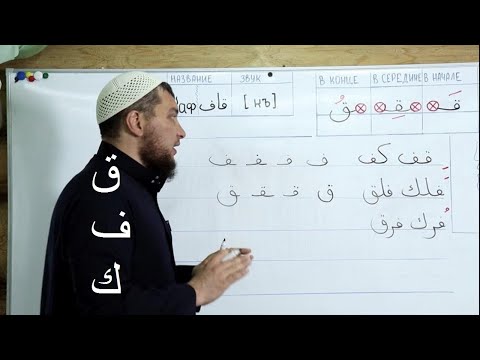 НАЗВАНИЕ ЗВУК
В КОНЦЕ В СЕРЕДИНЕ В НАЧАЛЕ
قاف [къ]
قَـ ـقِـ ـقُ
قف كف ف فـ ـفـ ـف
فَلك فلق ق قـ ـقـ ـق
فُرك فرق
ق
ف
ك